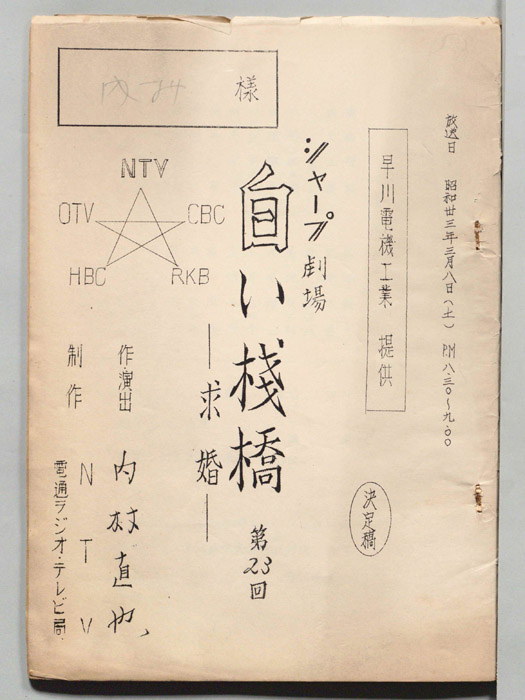 放送日　昭和卅三年三月八日(土)　PM八.三〇～九.〇〇
早川電機工業　提供
決定稿
シャープ劇場
白い桟橋
―求婚―
第23回
様
NTV
OTV
CBC
HBC
RKB
作・演出　内村直也
制作　NTV
電通ラジオ・テレビ局